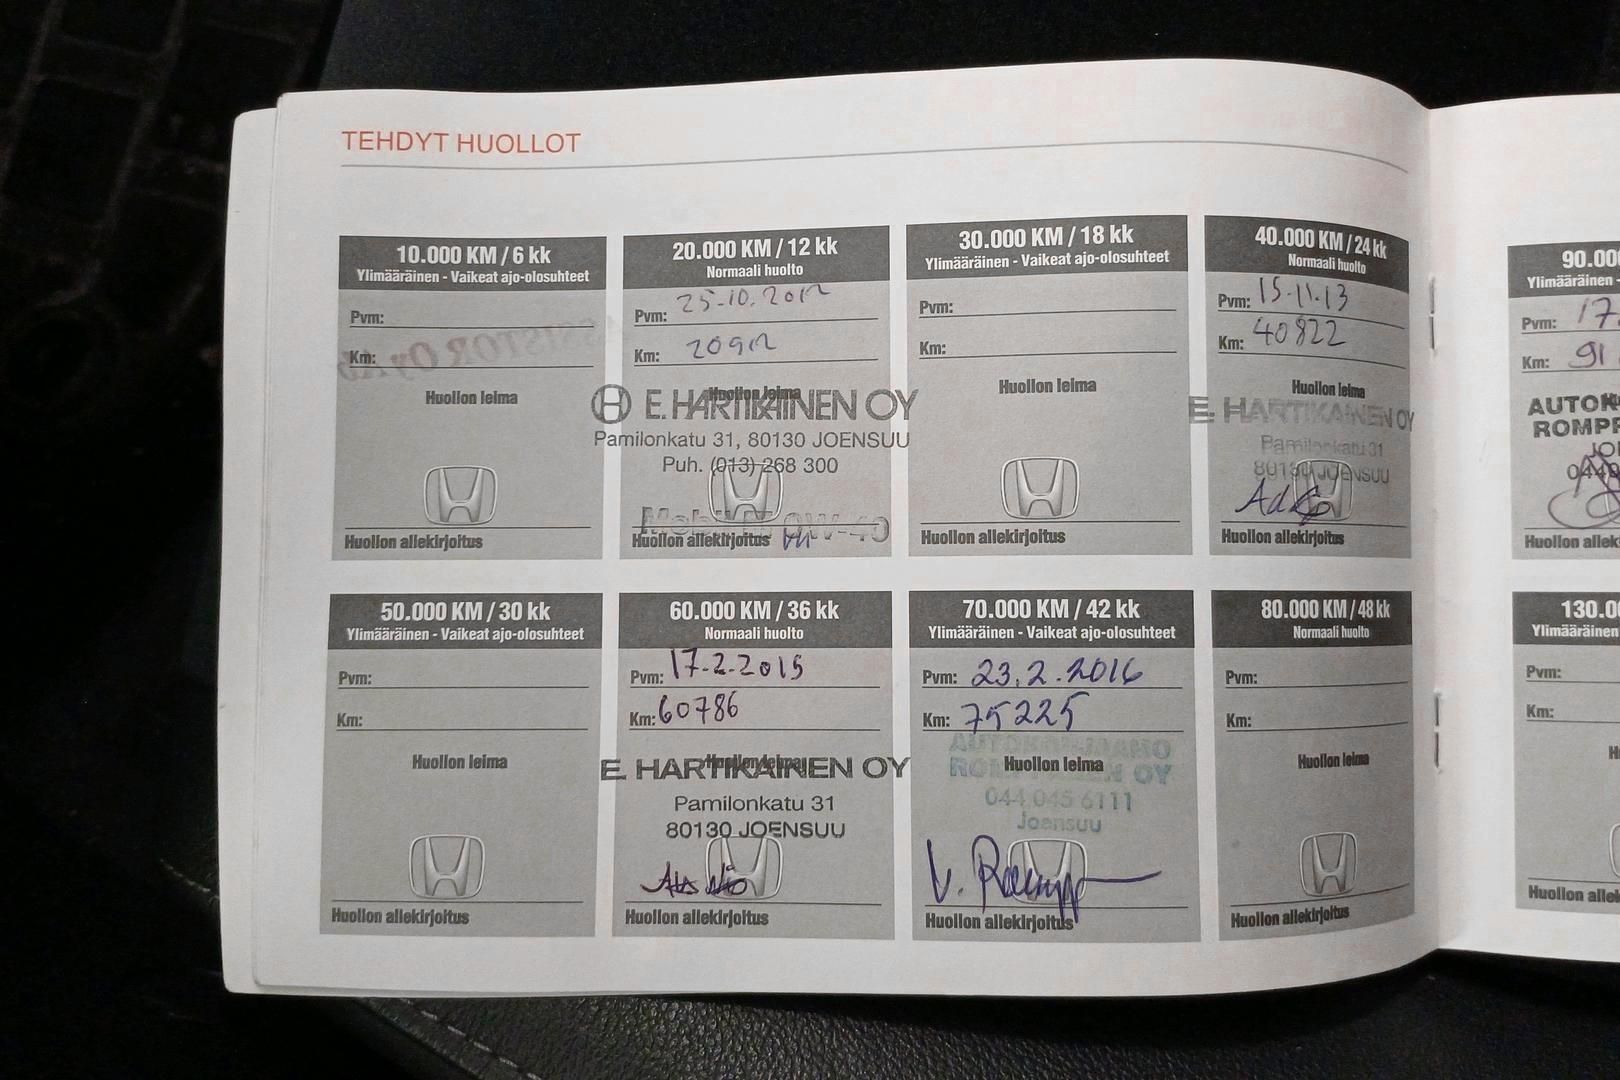 TEHDYT HUOLLOT
10.000 KM / 6 kk
Ylimääräinen - Vaikeat ajo-olosuhteet
Pvm:
Km:
Huollon leima
Huollon allekirjoitus
20.000 KM / 12 kk
Normaali huolto
Pvm: 25.10.2012
Km: 20912
Huollon leima
E. HARTIKAINEN OY
Pamilonkatu 31, 80130 JOENSUU
Puh. (013) 268 300
0W-40
Huollon allekirjoitus
30.000 KM / 18 kk
Ylimääräinen - Vaikeat ajo-olosuhteet
Pvm:
Km:
Huollon leima
Huollon allekirjoitus
40.000 KM / 24 kk
Normaali huolto
Pvm: 15.11.13
Km: 40822
Huollon leima
E. HARTIKAINEN OY
Pamilonkatu 31
80130 JOENSUU
Huollon allekirjoitus
90.00
Ylimääräinen -
Pvm: 17.
Km: 91
AUTOK
ROMPP
JO
Huollon allek
50.000 KM / 30 kk
Ylimääräinen - Vaikeat ajo-olosuhteet
Pvm:
Km:
Huollon leima
Huollon allekirjoitus
60.000 KM / 36 kk
Normaali huolto
Pvm: 17.2.2015
Km: 60786
Huollon leima
E. HARTIKAINEN OY
Pamilonkatu 31
80130 JOENSUU
Huollon allekirjoitus
70.000 KM / 42 kk
Ylimääräinen - Vaikeat ajo-olosuhteet
Pvm: 23.2.2016
Km: 75225
Huollon leima
044 045 6111
Joensuu
Huollon allekirjoitus
80.000 KM / 48 kk
Normaali huolto
Pvm:
Km:
Huollon leima
Huollon allekirjoitus
130.0
Ylimääräinen
Pvm:
Km:
H
Huollon allek